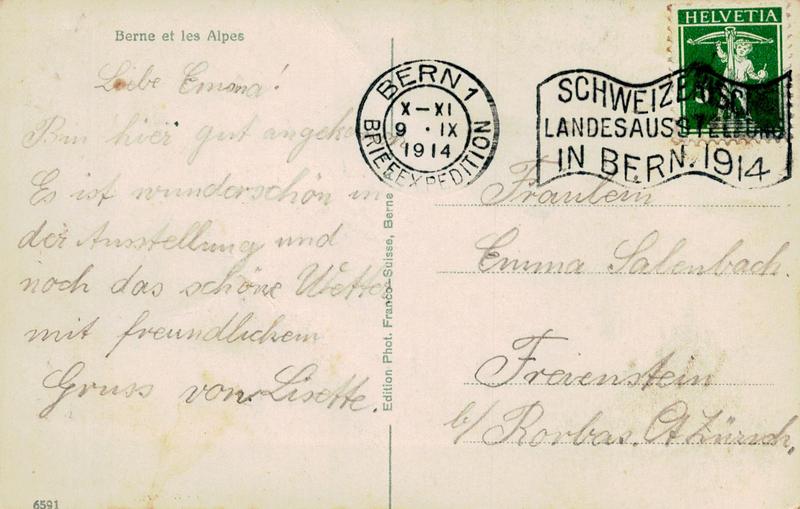 Berne et les Alpes
Liebe Emma!
Bin hier gut
Es ist wunderschön in
der Ausstellung und
noch das schöne Wetter
mit freundlichem
Gruss von Lisette.
6591
Edition Phot. Franco-Suisse, Berne
BERN 1
X-XI
9 · IX
1914
BRIEFEXPEDITION
HELVETIA
SCHWEIZERISCHE
LANDESAUSSTELLUNG
IN BERN. 1914
Fräulein
Emma Salenbach.
Freienstein
b/ Rorbas. Ct Zürich.